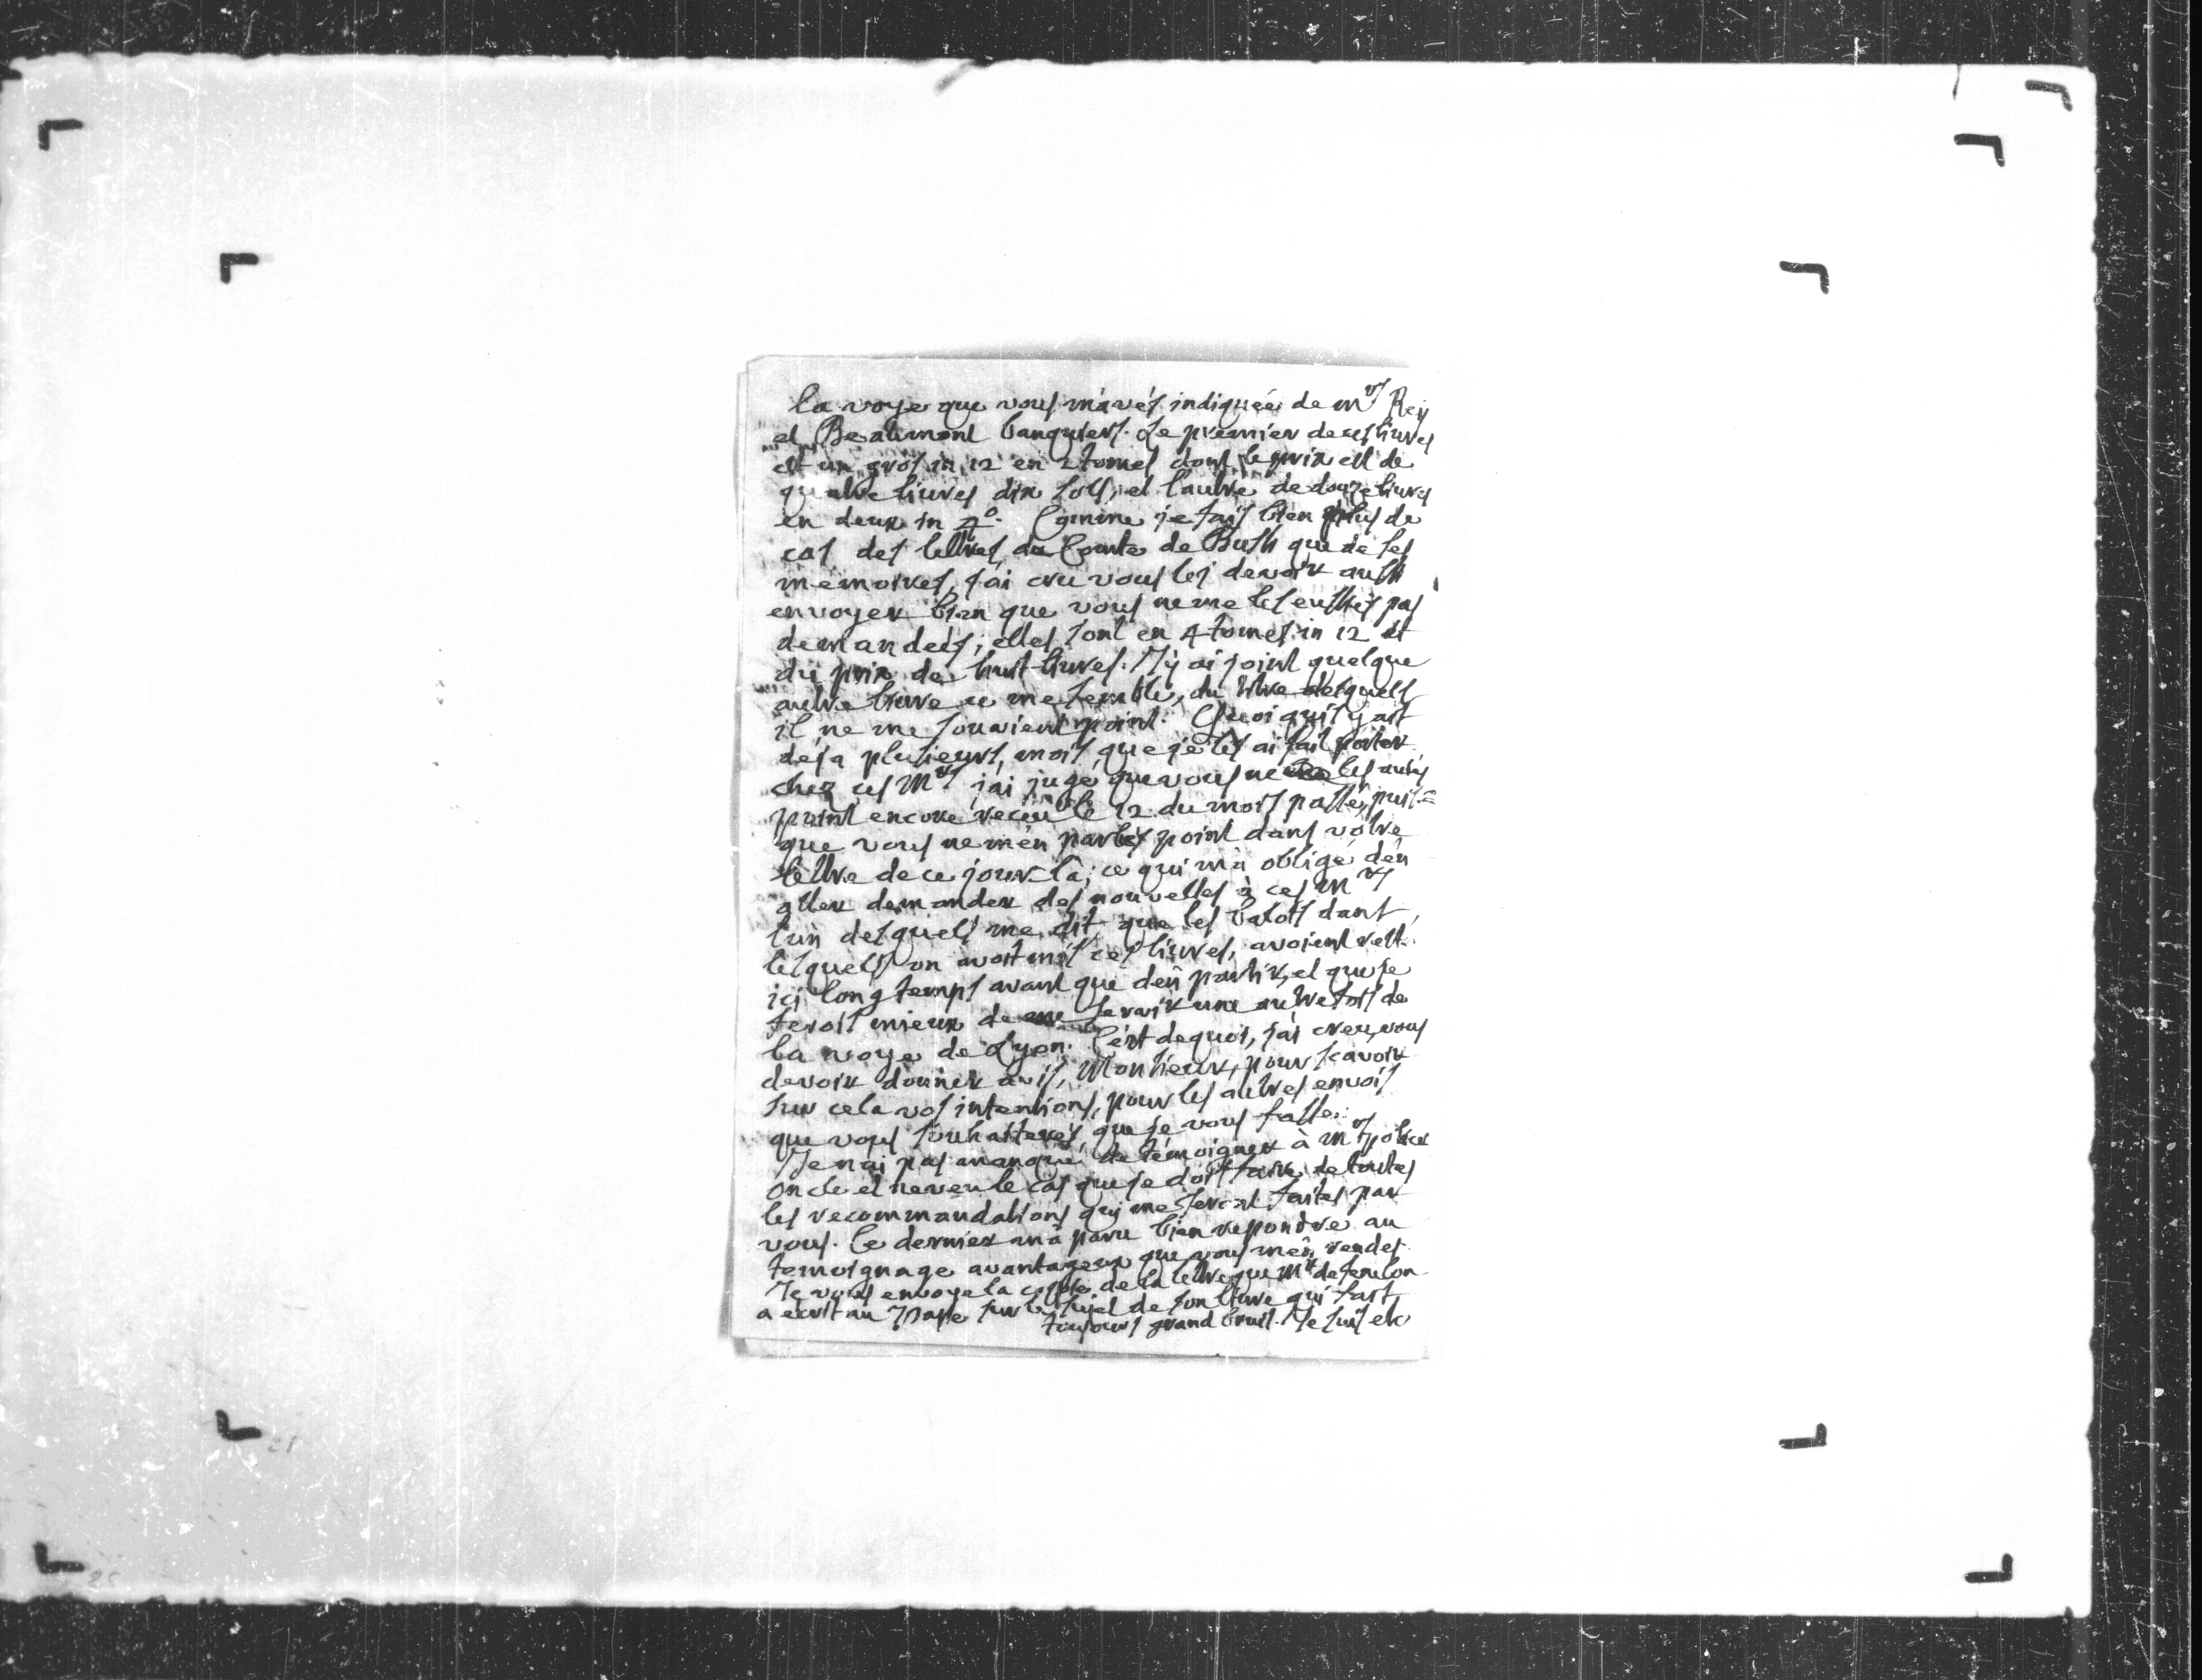 la voye que vous m'avés indiquée de Mrs Rey
et Beaumont banquiers. Le premier de ces livres
est un gros in 12 en 2 tomes dont le prix est de
quatre livres dix sols, et l'autre de douze livres
en deux in 4o. Comme je fais bien plus de
cas des lettres du Comte de Bussi que de ses
memoires, j'ai cru vous les devoir aussi
envoyer bien que vous ne me les eussiés pas
demandées; elles sont en 4 tomes in 12 et
du prix de huit livres. J'y ai joint quelque
autre livre ce me semble, du titre desquels
il ne me souvient point. Quoi qu'il y ait
deja plusieurs mois, que je les ai fait porter
chez ces Mrs j'ai jugé que vous ne les aviés
point encore receu le 12 du mois passé, puis=
que vous ne m'en parlés point dans vôtre
lettre de ce jour-là; ce qui m'a obligé d'en
aller demander des nouvelles à ces Mrs
l'un desquels me dit que les balots dans
lesquels on avoit mis ces livres, avoient resté
ici long temps avant que d'en partir, et que je
ferois mieux de me servir une autre fois de
la voye de Lyon. C'est dequoi, j'ai creu, vous
devoir donner avis, Monsieur, pour scavoir
sur cela vos intentions, pour les autres envois
que vous souhaiterés, que je vous fasse.
Je n'ai pas manqué de témoigner à Mrs
oncle et neveu le cas que je dois faire de toutes
les recommandations qui me seront faites par
vous. Le dernier m'a paru bien repondre au
temoignage avantageux que vous m'en rendes.
Je vous envoye la copie de la lettre que Mr de Fenelon
a ecrit au Pape sur le sujet de son livre qui fait
toujours grand bruit. Je suis etc